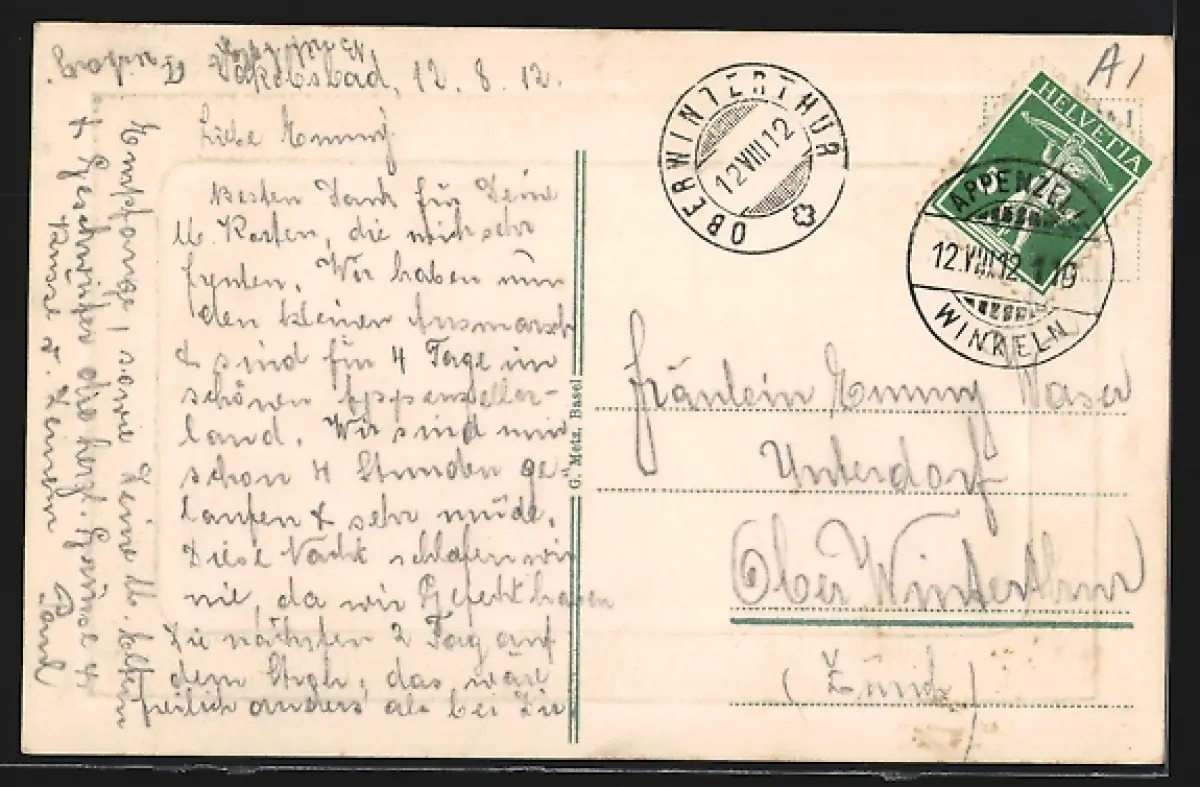 Jakobsbad, 12. 8. 12.
Liebe Emmy
Besten Dank für Deine
lb. Karten, die mich sehr
freuten. Wir haben nun
den kleinen Ausmarsch
& sind für 4 Tage im
schönen Appenzeller-
land. Wir sind nun
schon 4 Stunden ge-
laufen & sehr müde.
Diese Nacht schlafen wir
nie, da wir Gefecht haben
Die nächsten 2 Tag auf
dem Stroh, das wäre
freilich anders als bei Dir
Empfange, sowie Deine lb. Eltern
& Geschwister die herzl. Grüsse &
Küsse v. Deinem
Paul
OBERWINTERTHUR
12 VIII 12
A1
HELVETIA
APPENZELL
12.VIII 12
WINKELN
G. Metz, Basel
Fräulein Emmy Waser
Unterdorf
Ober Winterthur
(Zürich)